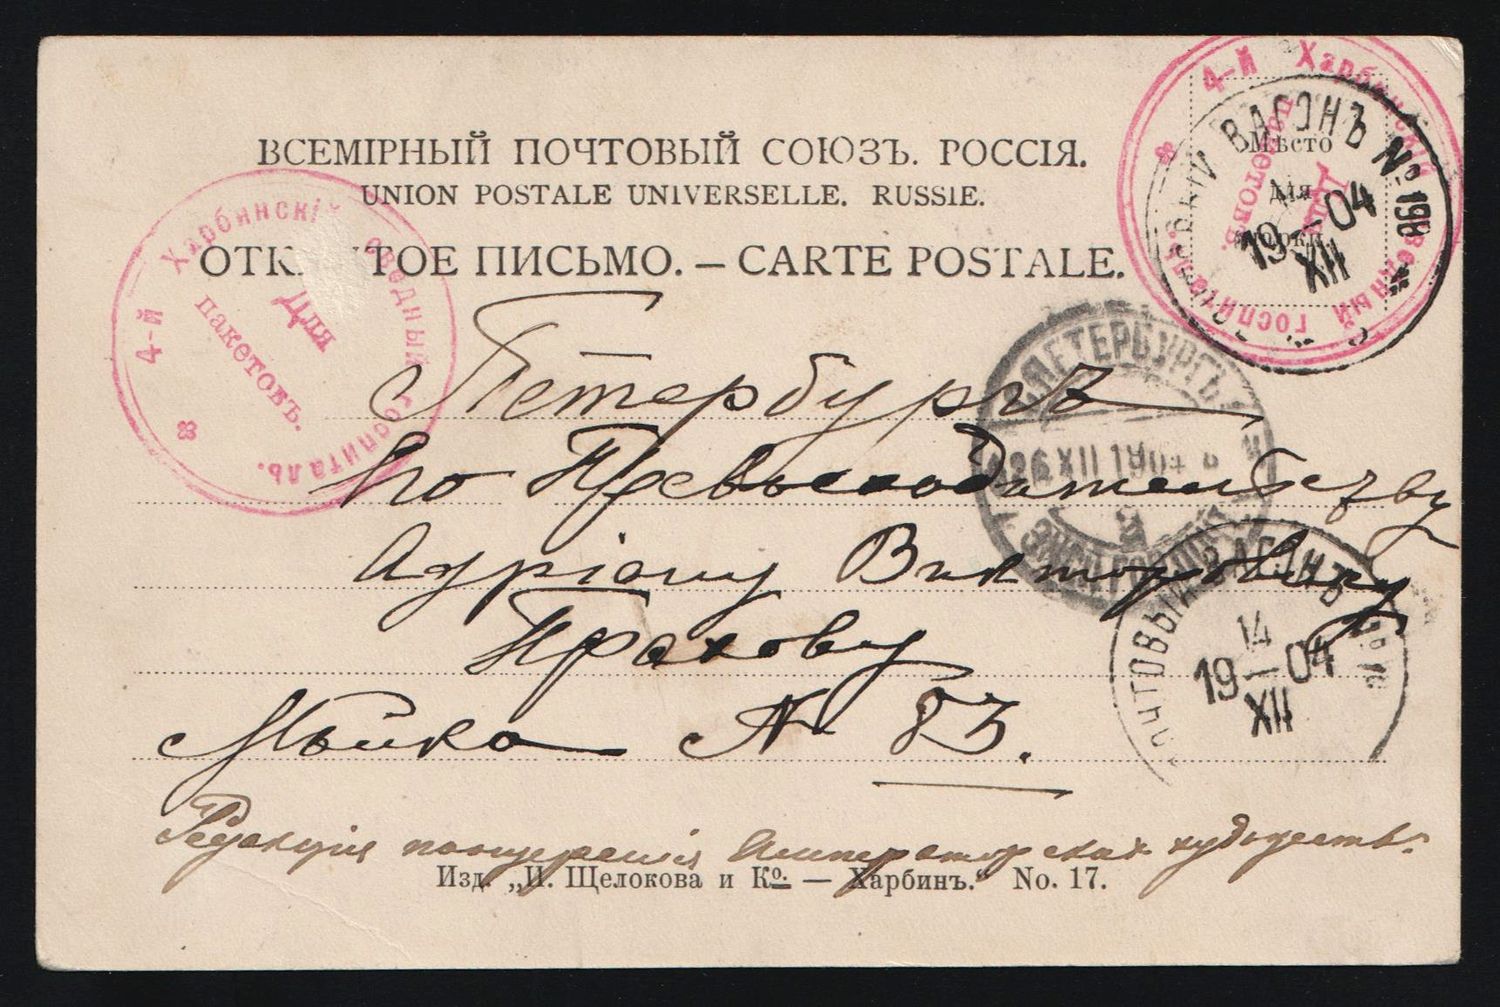 ВСЕМІРНЫЙ ПОЧТОВЫЙ СОЮЗЪ. РОССІЯ.
UNION POSTALE UNIVERSELLE. RUSSIE.
ОТК ТОЕ ПИСЬМО. — CARTE POSTALE.
4-й Харбинскій сводный госпиталь.
Для
пакетовъ.
4-й Харбинскій сводный госпиталь.
Для
пакетовъ.
Мѣсто
для
ВАГОНЪ № 198
19 — 04
XII
Петербургъ
Его Превосходительству
Адріану Викторовичу
Прахову
Мойка № 83.
С.ПЕТЕРБУРГЪ
26 XII 1904
ПОЧТОВЫЙ ВАГОНЪ №
14
19 — 04
XII
Редакція поощренія Императорскихъ художествъ.
Изд. „И. Щелокова и Ко. — Харбинъ.“ No. 17.